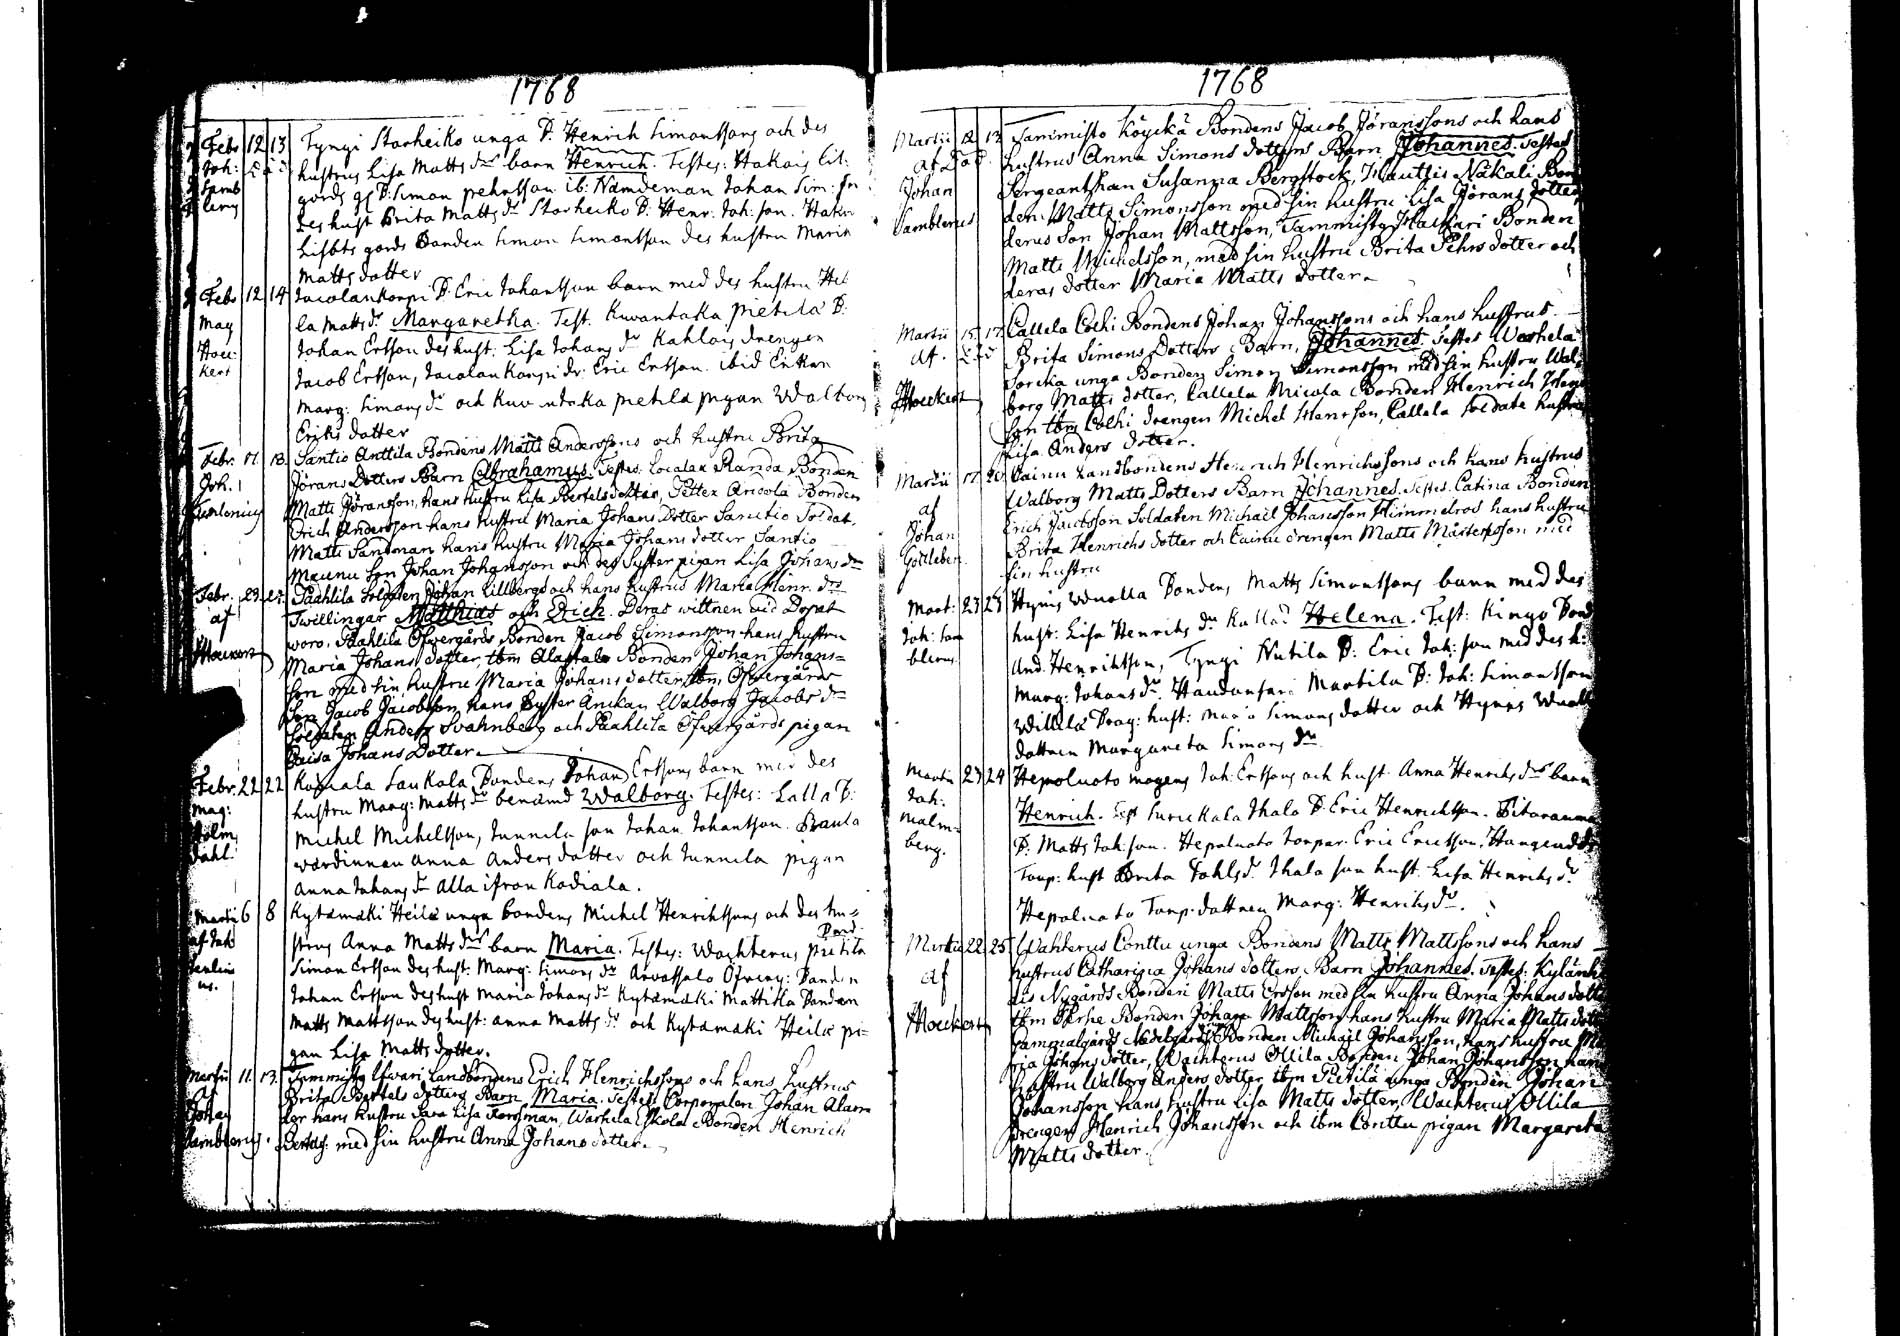 1768
Febr 12 13 Tyngi Storheiko unga B. Henrich Simonssons och des
Joh: hustrus Lisa Matts dr barn Henrich. Testes: Hakais Lil:
Samb gords B: Simon pehrsson ib: Nämdeman Johan Sim:
lerus des hust Brita Matts dr Storheiko B: Henr: Joh: son. Hakais
Lisbts gords Bonden Simon Simonsson des hustru Maria
Matts dotter
Febr 12 14 Jacolankorpi B: Eric Johansson barn med des hustru Hel
Mag la Matts dr Margaretha. Test. Kuvantaka Pietilä B:
Hoec: Johan Ersson des hust: Lisa Johans dr Kahlois drengen
kert Jacob Ersson, Jacolankorpi dr: Eric Ersson ibid Enkan
Marg: Simons dr och Kuvantaka pietilä pigan Walborg
Eriks dotter
Febr. 17. 18. Santio Anttila Bondens Matts Anderssons och hustru Brita
Joh. Jörans Dotters Barn Abrahamus. Testes. Localax Randa Bonden
Matts Jöransson, hans hustru Lisa Bertels dotter, Petter Anoola Bonden
Erich Andersson hans hustru Maria Johans Dotter Santio Soldat.
Matts Sandman hans hustru Maria Johans dotter Santio
Maunu Son Johan Johansson och des Syster pigan Lisa Johans dr
Febr. Paahlila Soldaten Johan Lillbergs och hans hustrus Maria Henr. drs
af Twillingar Matthias och Erich. Deras wittnen wid Dopet
Hoeckert woro. Paahlila Öfwergårds Bonden Jacob Simonsson hans hustru
Maria Johans dotter ibm Alastalo Bonden Johan Johans=
son med sin hustru Maria Johans dotter, ibm Öfwergårds
Son Jacob Jacobsson, hans Syster Änckan Walborg Jacobs dr
Soldaten Anders Svahnberg och Paahlila Öfwergårds pigan
Caisa Johans Dotter.
Febr. 22 22 Kodiala Laukola Bondens Johan Erssons barn med des
Mag: hustru Marg: Matts dr benämd Walborg. Testes: Lalla B:
Holm Michel Michelsson, Junnila son Johan Johansson. Braula
dahl. wärdinnan Anna Anders dotter och Junnila pigan
Anna Johans dr Alla ifron Kodiala.
Martii 6 8 Kytämäki Heikilä unga bondens Michel Henrikssons och des hu=
af Joh: strus Anna Matts drs barn Maria. Testes: Wachterus Pietilä Bond:
Simon Ersson des hust: Marg: Simons dr Arvassalo Öfverg: Bonden
us. Johan Ersson des hust Maria Johans dr Kytämäki Mattila Bonden
Matts Mattsson des hust: Anna Matts dr och Kytämäki Heikilä pi=
gan Lisa Matts dotter.
Martii 11. 13. Tammisto Landbondens Erich Henrichssons och hans hustrus
af Brita Bertels dotters Barn Maria. Testes. Corporalen Johan Alan
Johan der hans hustru Sara Lisa Forssman, Warhela Eskola Bonden Henrich
Samblerus. Bertels: med sin hustru Anna Johans dotter.
1768
Martii 12. 13. Tammisto Köyckä Bondens Jacob Jöranssons och hans
af hustrus Anna Simons dotters Barn Johannes. Testes
Johan Sergeantskan Susanna Bergstock, Näkali Bon
Samblerus den Matts Simonsson med sin hustru Lisa Jörans dotter,
deras Son Johan Mattsson, Tammisto Bonden
Matts Michelsson, med sin hustru Brita Pehrs dotter och
deras dotter Maria Matts dotter.
Martii 15. 17. Callela Cochi Bondens Johan Johanssons och hans hustrus.
af. Brita Simons Dotters Barn, Johannes. Testes Warhela
Hoeckert unga Bonden Simon Simonsson med sin hustru Wal=
borg Matts dotter, Callela Nicola Bonden Henrich Henr
son ibm Cochi drengen Michel Hansson, Callela Soldate hustru
Lisa Anders dotter.
Martii 17. 20. Cainu Landbondens Henrich Henrichssons och hans hustrus
af Walborg Matts Dotters Barn Johannes. Testes. Catina Bonden
Johan Erich Jacobsson Soldaten Michaël Johansson Himmelros hans hustru
Gottleben. Brita Henrichs dotter och Cainu drengen Matts Mårtensson med
sin hustru
Mart: 23 23 Hymis Wuolla Bondens Matts Simonssons barn med des
Joh: Sam hust: Lisa Henriks dr kallad Helena. Test: Kingo Bond
blerus. And: Henriksson, Tyngi Nutila B: Eric Joh: son med des h:
Marg: Johans dr. Haudansari Martila B: Joh: Simonsson
Willilä Drag: hust: Maria Simons dotter och Hymis Wuolla
dottren Margareta Simons dr.
Martii 23 24 Hepoluoto mogens Joh: Erssons och hust. Anna Henriks drs barn
Joh: Henrich. Test Surickala Ihala B. Eric Henrichsson. Pitoranna
Malm= B: Matts Joh: son. Hepoluoto torpar. Eric Ericsson,
berg. Torp: hust Brita Pohls dr Ihala son hust. Lisa Henriks dr.
Hepoluoto Torp: dottren Marg: Henriks dr.
Martii 22. 25. Wahterus Conttu unga Bondens Matts Mattssons och hans
af hustrus Catharina Johans dotters Barn Johannes. Testes. Kylänh
Hoeckert ais Nygårds Bonden Matts Ersson med sin hustru Anna Johans dotter
ibm Perhe Bonden Johan Mattsson hans hustru Maria Matts dotter
Gammalgårds Nedergårds Bonden Michaël Johansson, hans hustru Ma
ria Johans dotter, Wachterus Ollila Bonden Johan Johansson hans
hustru Walborg Anders dotter, ibm Pietilä unga Bonden Johan
Johansson hans hustru Lisa Matts dotter, Wachterus Ollila
Drengen Henrich Johansson och ibm Conttu pigan Margareta
Matts dotter.